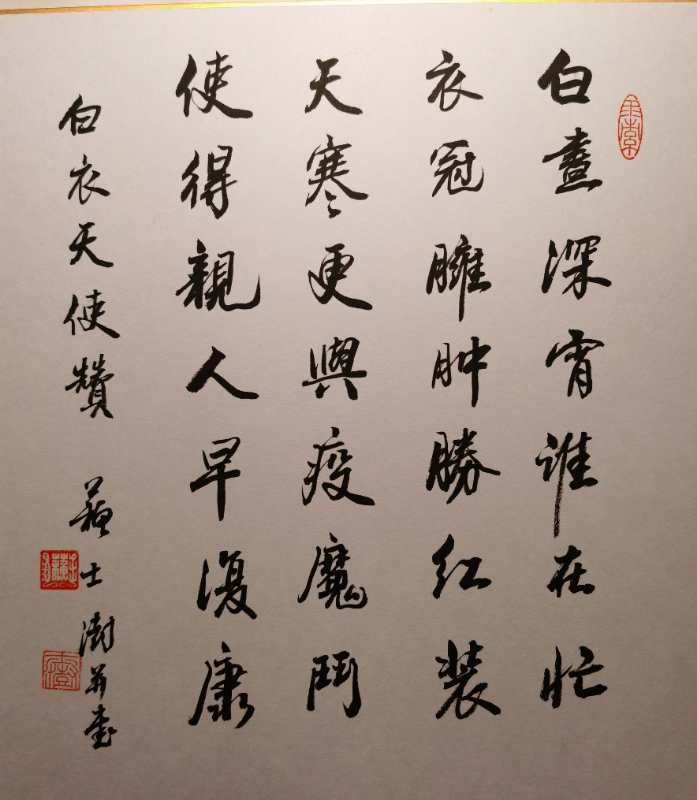 白晝深宵誰在忙
衣冠臃肿勝红裝
天寒更與疫魔鬥
使得親人早復康
白衣天使贊 蘇士澍并書